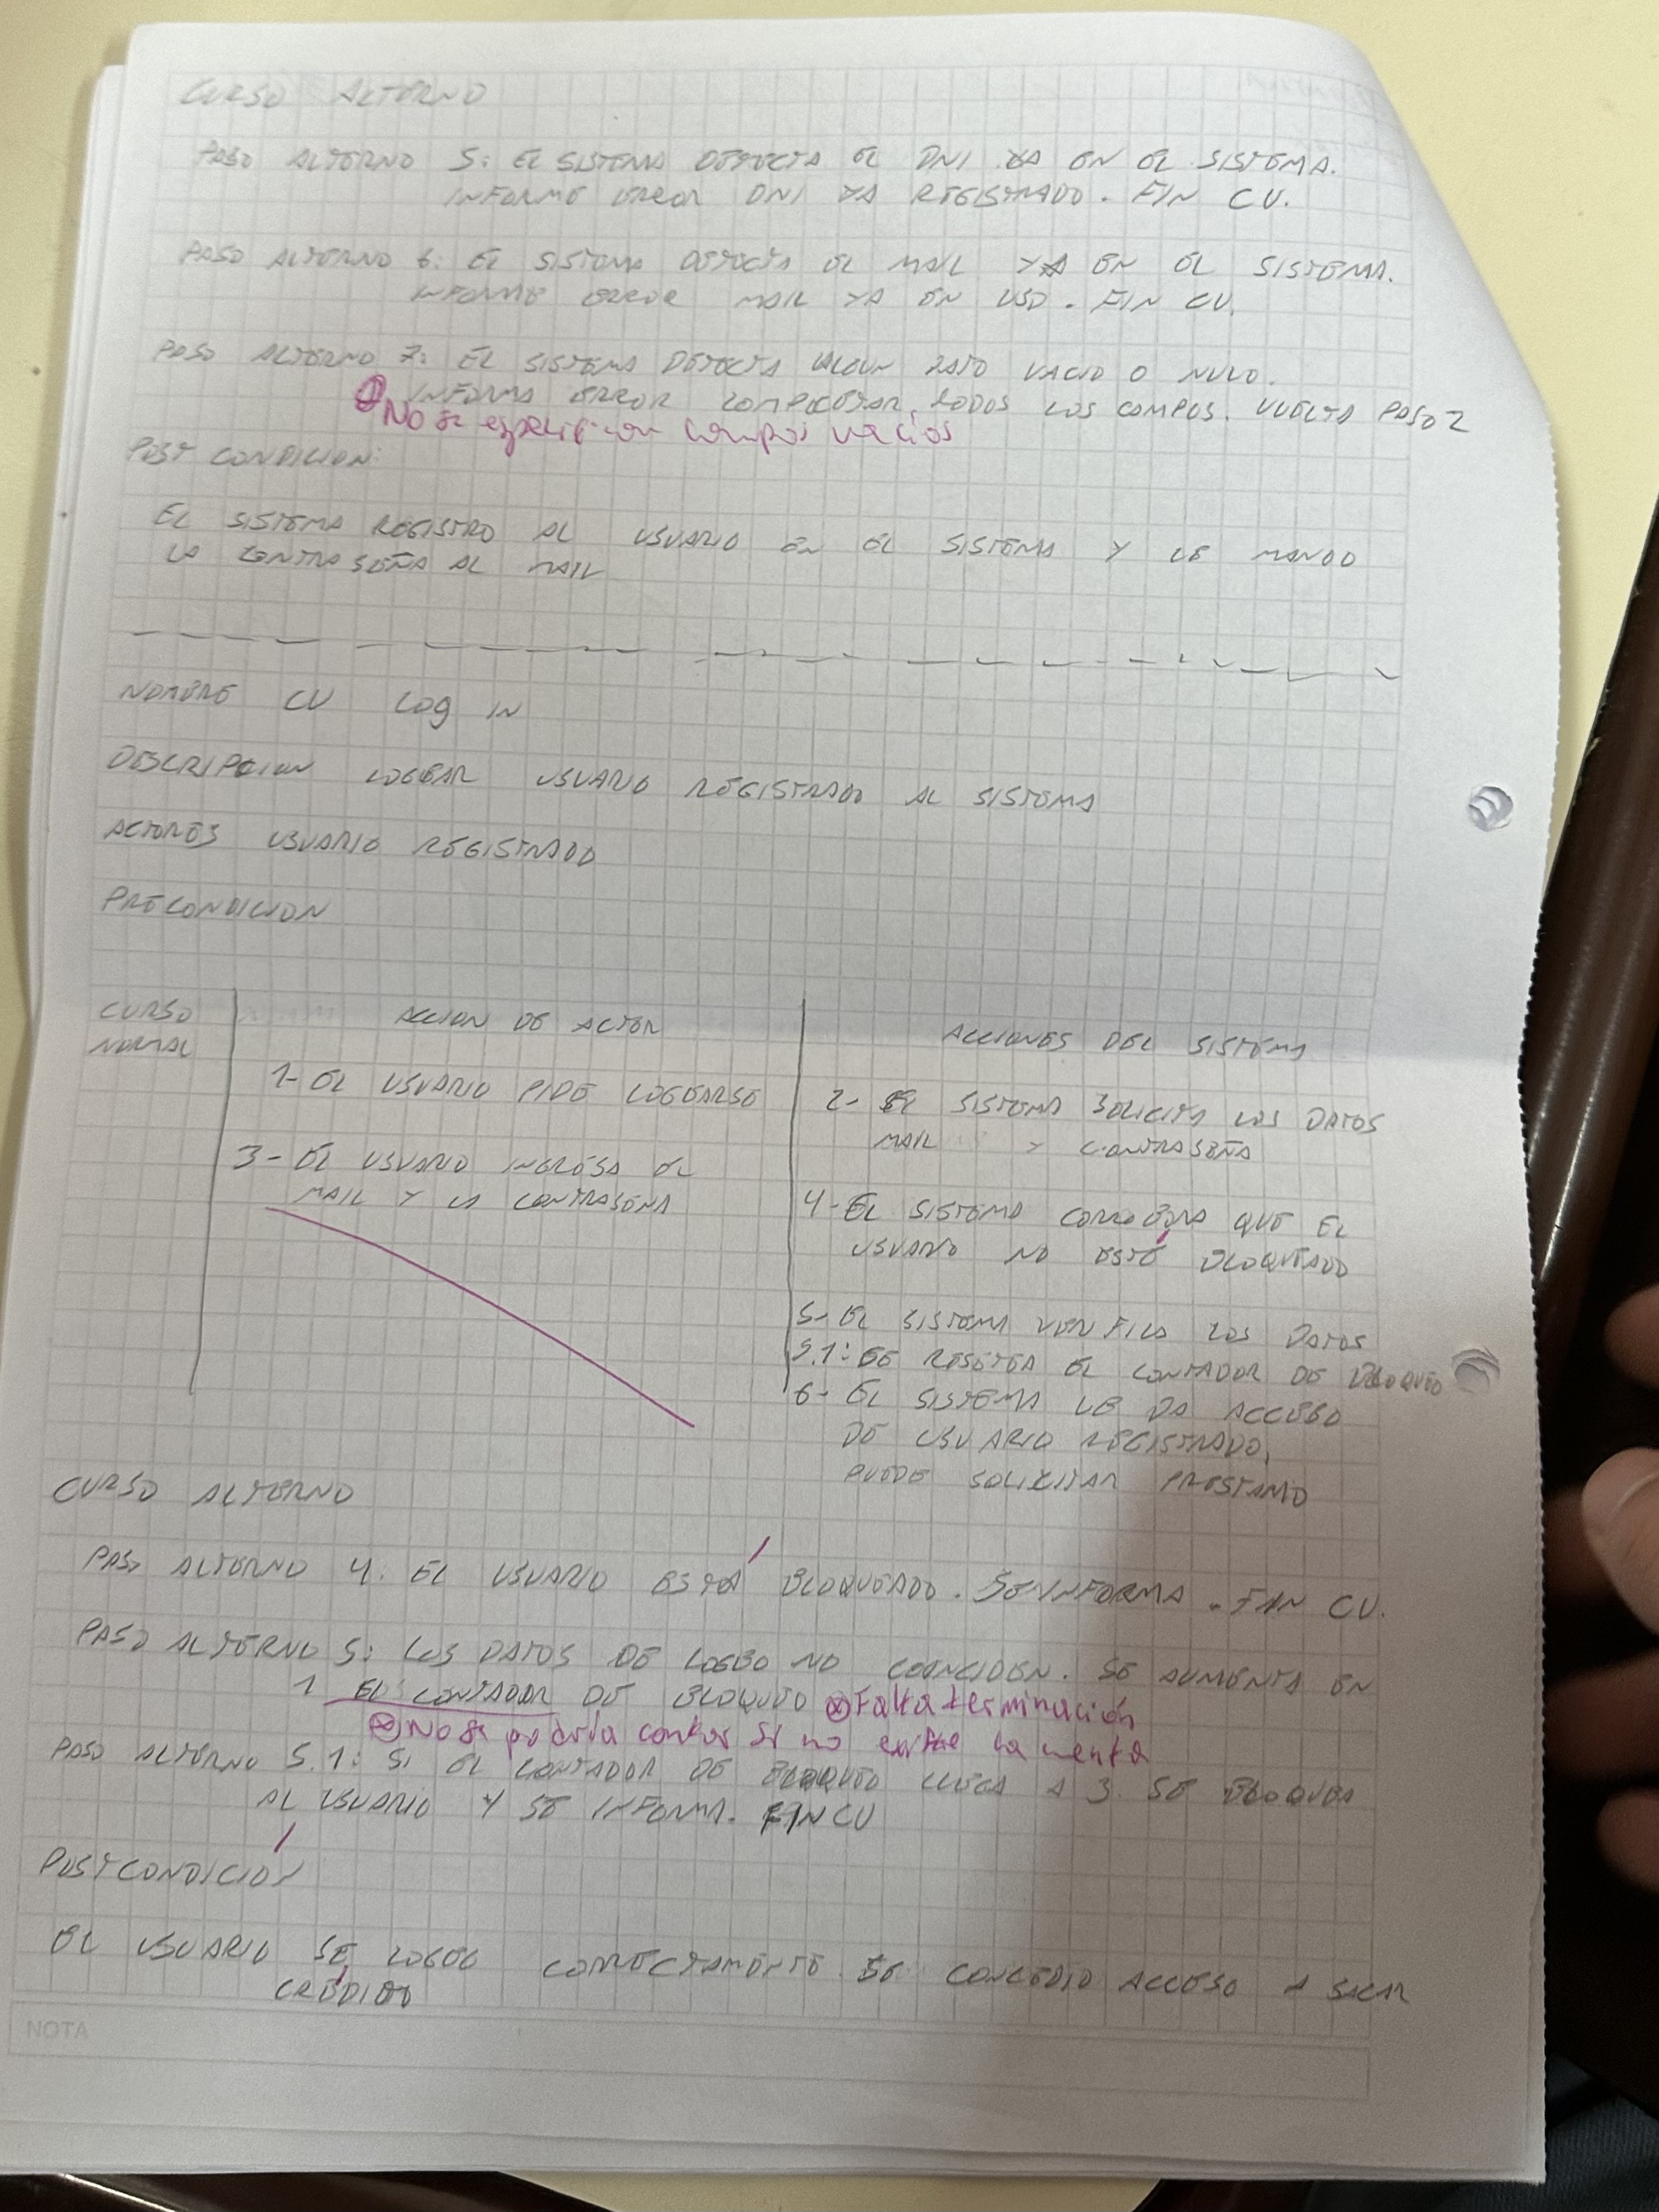 CURSO ALTERNO
PASO ALTERNO 5: EL SISTEMA DETECTA EL DNI YA EN EL SISTEMA.
INFORME ERROR DNI YA REGISTRADO. FIN CU.
PASO ALTERNO 6: EL SISTEMA DETECTA EL MAIL YA EN EL SISTEMA.
INFORME ERROR MAIL YA EN USO. FIN CU.
PASO ALTERNO 7: EL SISTEMA DETECTA ALGUN DATO VACIO O NULO.
INFORMA ERROR COMPLETAR TODOS LOS CAMPOS. VUELTA PASO 2
No se especifican campos vacíos
POST CONDICION:
EL SISTEMA REGISTRO AL USUARIO EN EL SISTEMA Y LE MANDO
LA CONTRASEÑA AL MAIL
NOMBRE CU LOG IN
DESCRIPCION LOGEAR USUARIO REGISTRADO AL SISTEMA
ACTORES USUARIO REGISTRADO
PRECONDICION
CURSO NORMAL
ACCION DE ACTOR
ACCIONES DEL SISTEMA
1- EL USUARIO PIDE LOGEARSE
2- EL SISTEMA SOLICITA LOS DATOS
MAIL Y CONTRASEÑA
3- EL USUARIO INGRESA EL
MAIL Y LA CONTRASEÑA
4- EL SISTEMA CORROBORA QUE EL
USUARIO NO ESTÉ BLOQUEADO
5- EL SISTEMA VERIFICA LOS DATOS
5.1: SE RESETEA EL CONTADOR DE BLOQUEO
6- EL SISTEMA LE DA ACCESO
DE USUARIO REGISTRADO,
PUEDE SOLICITAR PRESTAMO
CURSO ALTERNO
PASO ALTERNO 4: EL USUARIO ESTÁ BLOQUEADO. SE INFORMA. FIN CU.
PASO ALTERNO 5: LOS DATOS DE LOGEO NO COINCIDEN. SE AUMENTA EN
1 EL CONTADOR DE BLOQUEO Falta terminación
No se podría contar si no existe la cuenta
PASO ALTERNO 5.1: SI EL CONTADOR DE BLOQUEO LLEGA A 3 SE BLOQUEA
AL USUARIO Y SE INFORMA. FIN CU
POSTCONDICIÓN
EL USUARIO SE LOGEO CORRECTAMENTE SE CONCEDIO ACCESO A SACAR
CRÉDITO
NOTA